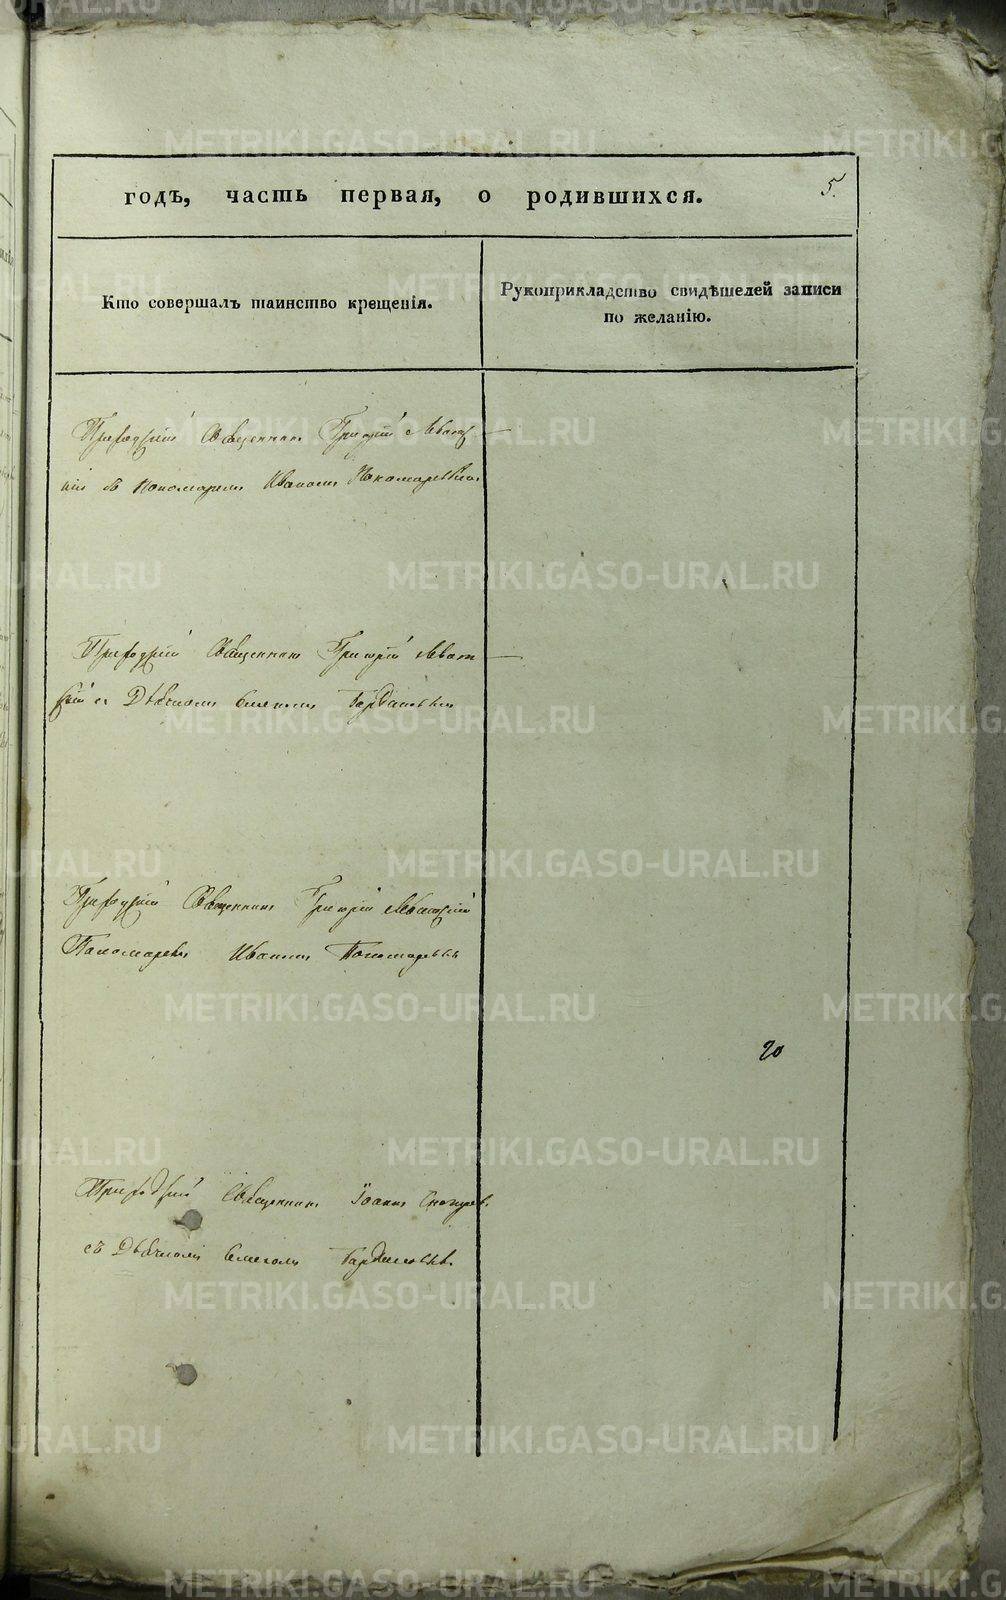 5.
годъ, часть первая, о родившихся.
Кто совершалъ таинство крещенія.
Рукоприкладство свидѣтелей записи
по желанію.
Приходскій Священникъ Григорій Левит
скій съ Пономаремъ Иваномъ Пономаревымъ
Приходскій Священникъ Григорій Левит
скій съ Дьячкомъ
Приходскій Священникъ Григорій Левитскій
Пономаремъ Иваномъ Пономаревымъ
20
Приходскій Священникъ Іоаннъ
съ Дьячкомъ
METRIKI.GASO-URAL.RU